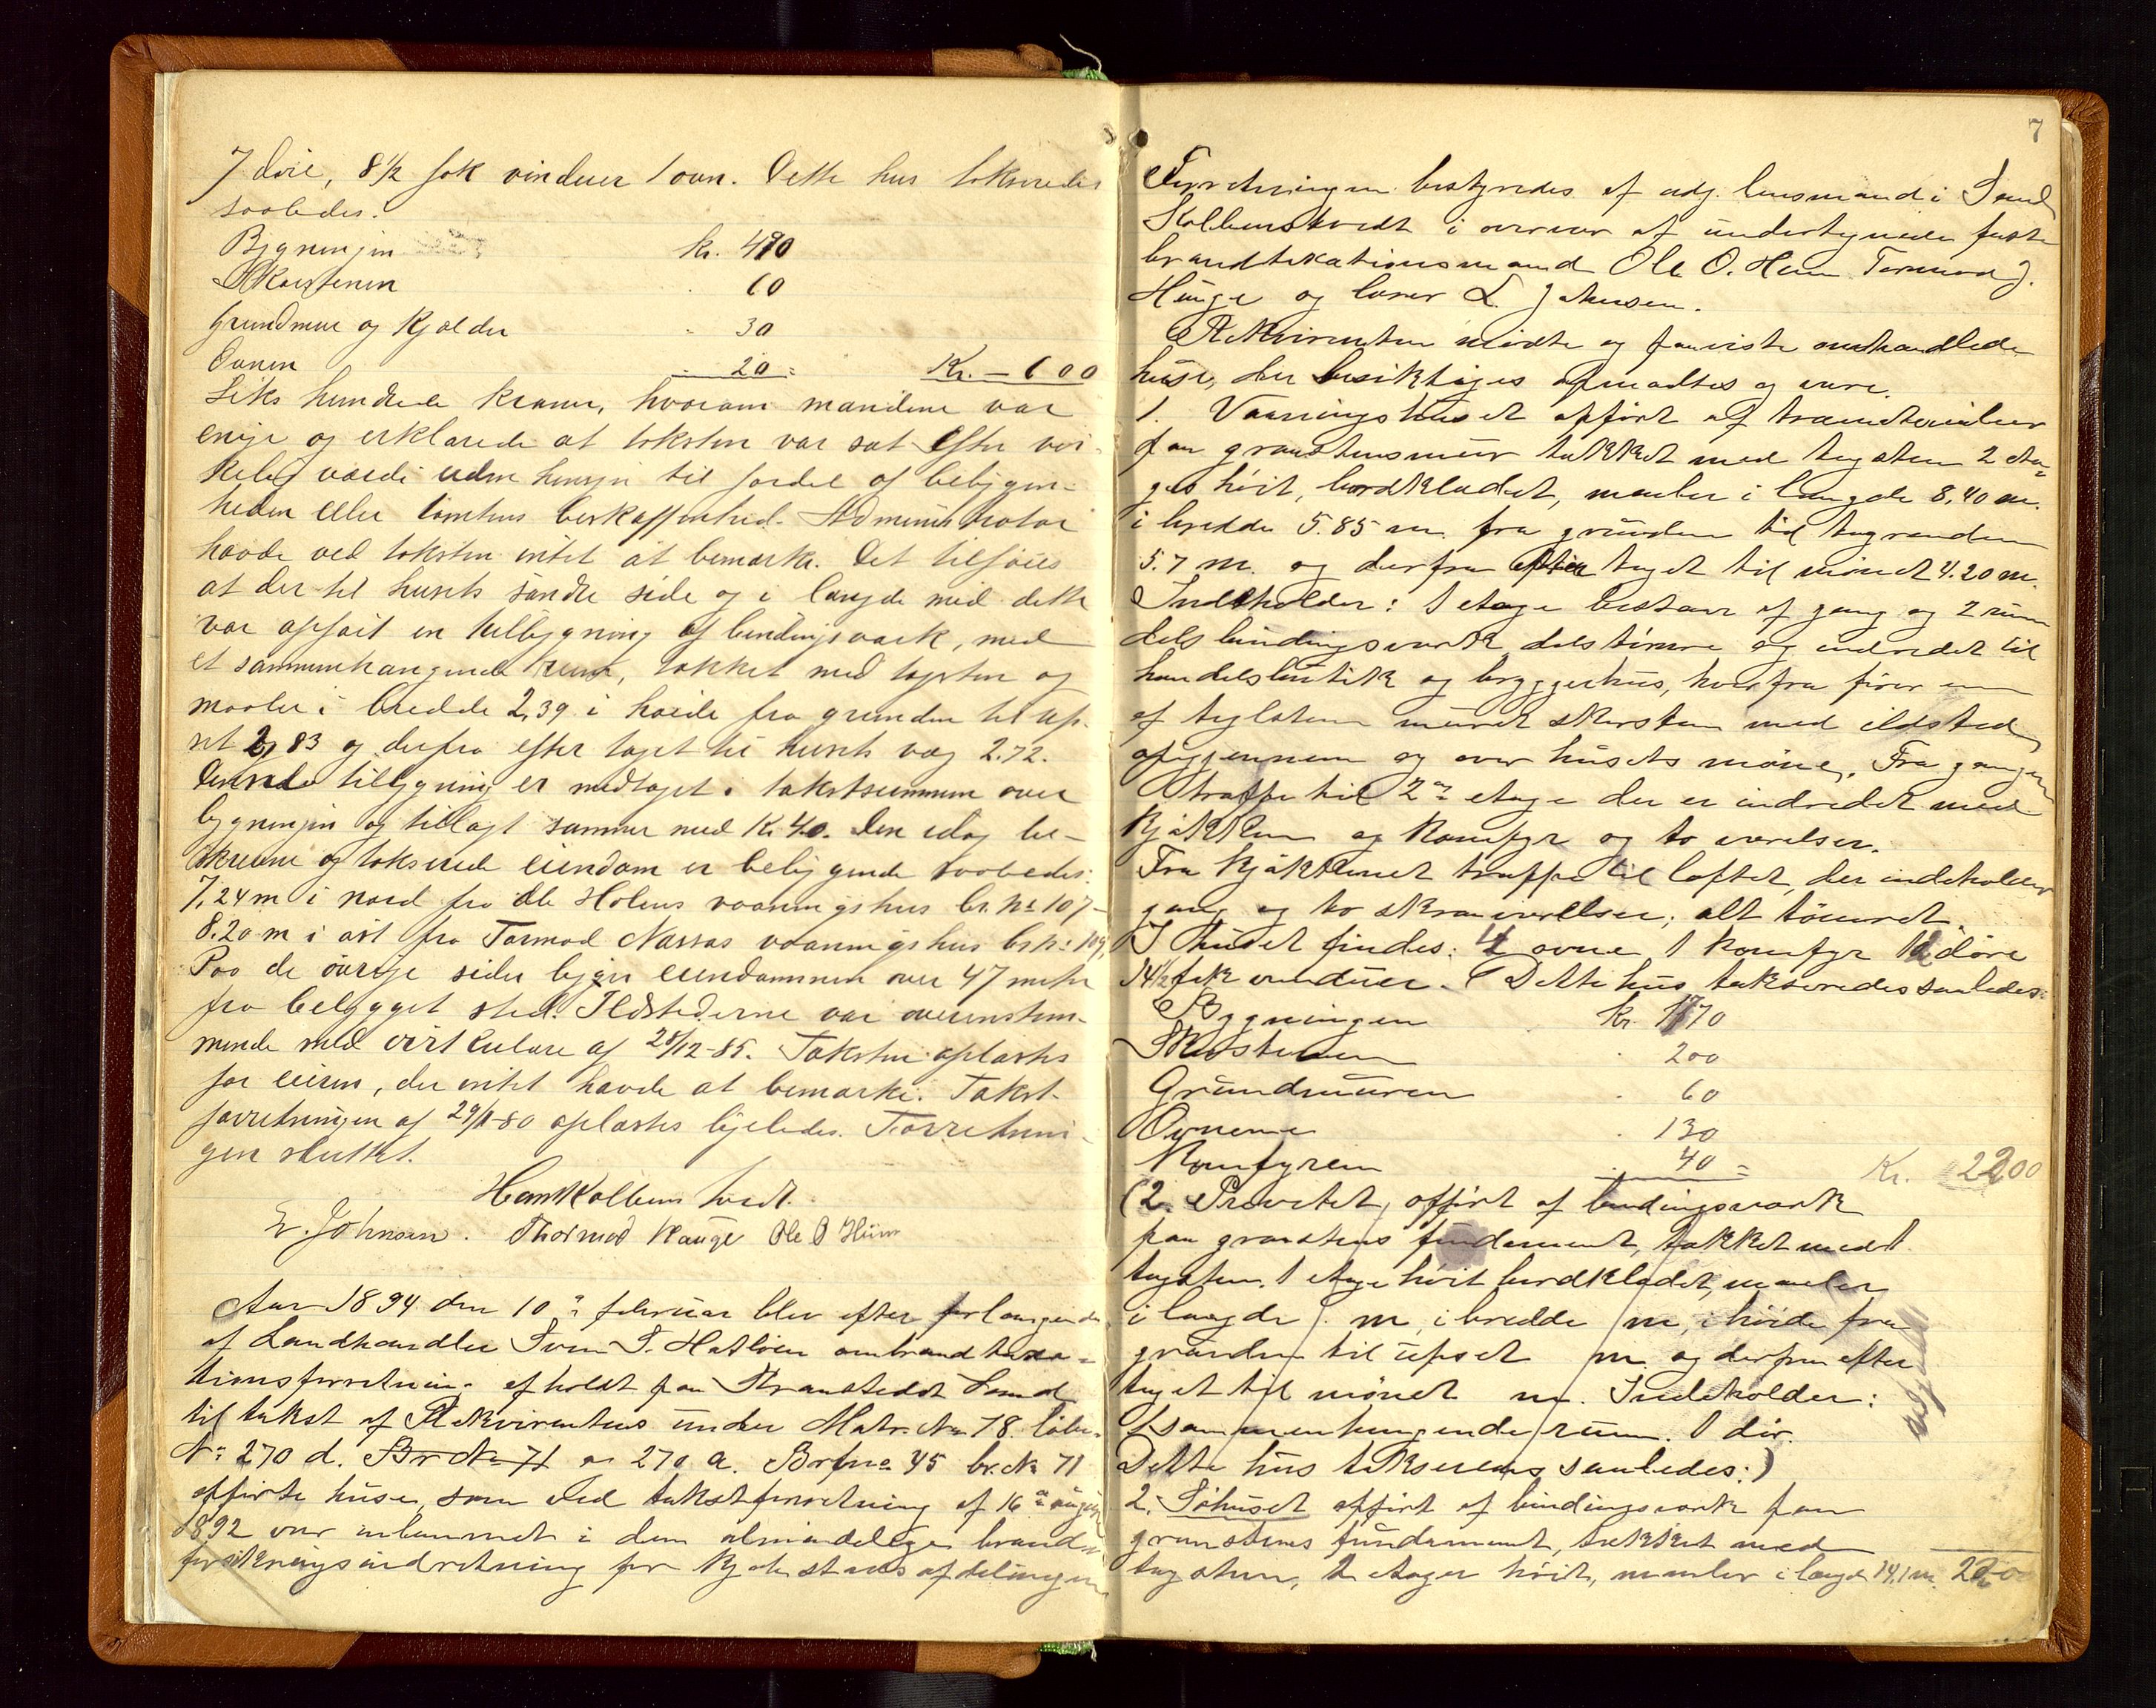 7 döre, 8 1/2 fok vinduer 1 ovn. Dette hus takseredes
saaledes.
Bygningen kr. 490
Skorstenen . 60
Grundmur og Kjælder . 30
Ovnen . 20 = Kr. – 600
Seks hundrede kroner, hvorom mændene var
enige og erklærede at taksten var sat efter vir-
kelig værdi uden hensyn til fordel af bebyggen-
heden eller tomtens beskaffenhed. Administrator
havde ved taksten intet at bemærke. Det tilföies
at der til husets söndre side og i længde med dette
var opfört en tilbygning af bindingsværk, med
et sammenhængende rum, tækket med tagsten og
maaler i bredde 2,39 i höide fra grunden til up-
set 2,83 og derfra efter taget til husets væg 2.72.
Denne tilbygning er medtaget i takstsummen over
bygningen og tillagt samme med Kr. 40. Den idag be-
skrevne og takserede eiendom er beliggende saaledes:
7,24 m i nord fra Ole Holens vaaningshus br. No 107-
8.20 m i öst fra Tormod Næssas vaaningshus br No 109,
Paa de övrige sider ligger eiendommen over 47 meter
fra bebygget sted. Ildstederne var overenstem-
mende med cirkulære af 28/12-85. Taksten oplæstes
for eieren, der intet havde at bemærke. Takst-
forretningen af 29/11-80 oplæstes ligeledes. Forretnin-
gen sluttet.
Hans Kolbenstvedt.
L. Johnsen. Thormod Hauge Ole O Hiim
Aar 1894 den 10de februar blev efter forlangende
af Landhandler Sven S. Hatlöen ombrandtaxa-
tionsforretning afholdt paa Strandstedet Sand
til takst af Rekvirentens under Matr. No 78. löbe-
No 270 d. Br No 71 og 270 a. Brno 45 br. No 71
opförte huse, som ved takstforretning af 16de august
1892 var indlemmet i den almindelige brand-
forsikringsindretning for Kjöbstæds afdelingen
7
Forretningen bestyredes af adj. lensmand i Sand
Kolbenstvedt i overvær af undertegnede faste
brandtakationsmænd Ole O. Hiim Tormod J.
Hauge og lærer L. Johnsen.
Rekvirenten mödte og paaviste omhandlede
huse, der besiktiges opmaaltes og var.
1. Vaaningshuset opfört af træmaterialier
paa graastensmur tækket med tagsten 2 eta-
ges höit, bordklædet, maaler i længde 8,40 m.
i bredde 5.85 m fra grunden til tagrenden
5.7 m. og derfra efter taget til mönet 4.20 m.
Indeholder: 1 etage bestaar af gang og 2 rum
dels bindingsværk dels tömmer og indredet til
handelsbutik og bryggerhus, hvorfra förer en
af teglsten muret skorsten med ildsted
opigjennem og over husets möne. Fra gangen
trappe til 2den etage der er indredet med
kjökken og komfyr og to værelser.
Fra kjökkenet trappe til loftet, der indeholder
gang og to skraaværelser; alt tömret.
I huset findes: 4 ovne 1 komfyr 12 döre
14 1/2 fok vinduer. Dette hus takseredes saaledes:
Bygningen kr. 1770
Skorstenen . 200
Grundmuren . 60
Ovnene . 130
Komfyren . 40 = Kr. 2200
(2. Privetet, opfört af bindingsværk
paa graastens fundament, tækket med
tagsten. 1 etage höit bordklædet, maaler
i længde m, i bredde m, i höide fra
grunden til upset m. og derfra efter
taget til mönet m. Indeholder:
1 sammenhengende rum. 1 dör.
Dette hus takseres saaledes:)
2. Söhuset opfört af bindingsværk paa
graastens fundament, tækket med
tagsten, 2 etager höit, maaler i længde 14,1 m. 2200